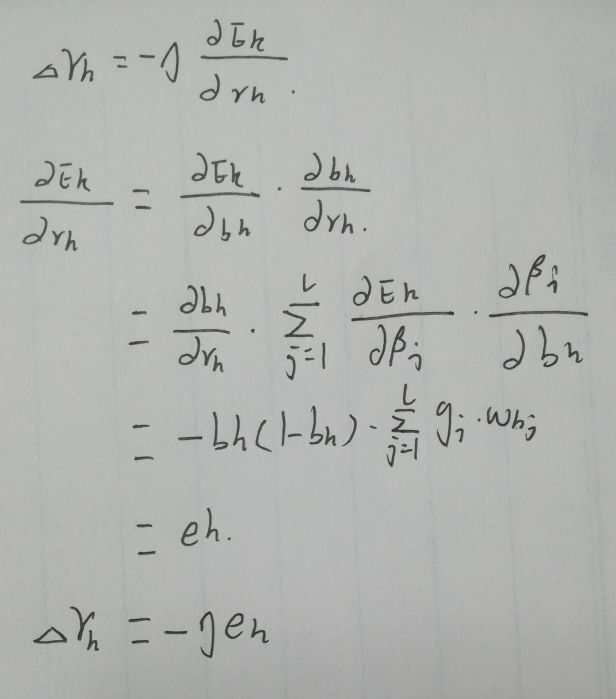 △γh = -η ∂Ek/∂rh.
∂Ek/∂rh = ∂Ek/∂bh · ∂bh/∂rh.
= ∂bh/∂rh · Σ_{j=1}^{L} ∂Ek/∂βj · ∂βj/∂bh
= -bh(1-bh) · Σ_{j=1}^{L} gj · whj
= eh.
△γh = -ηeh